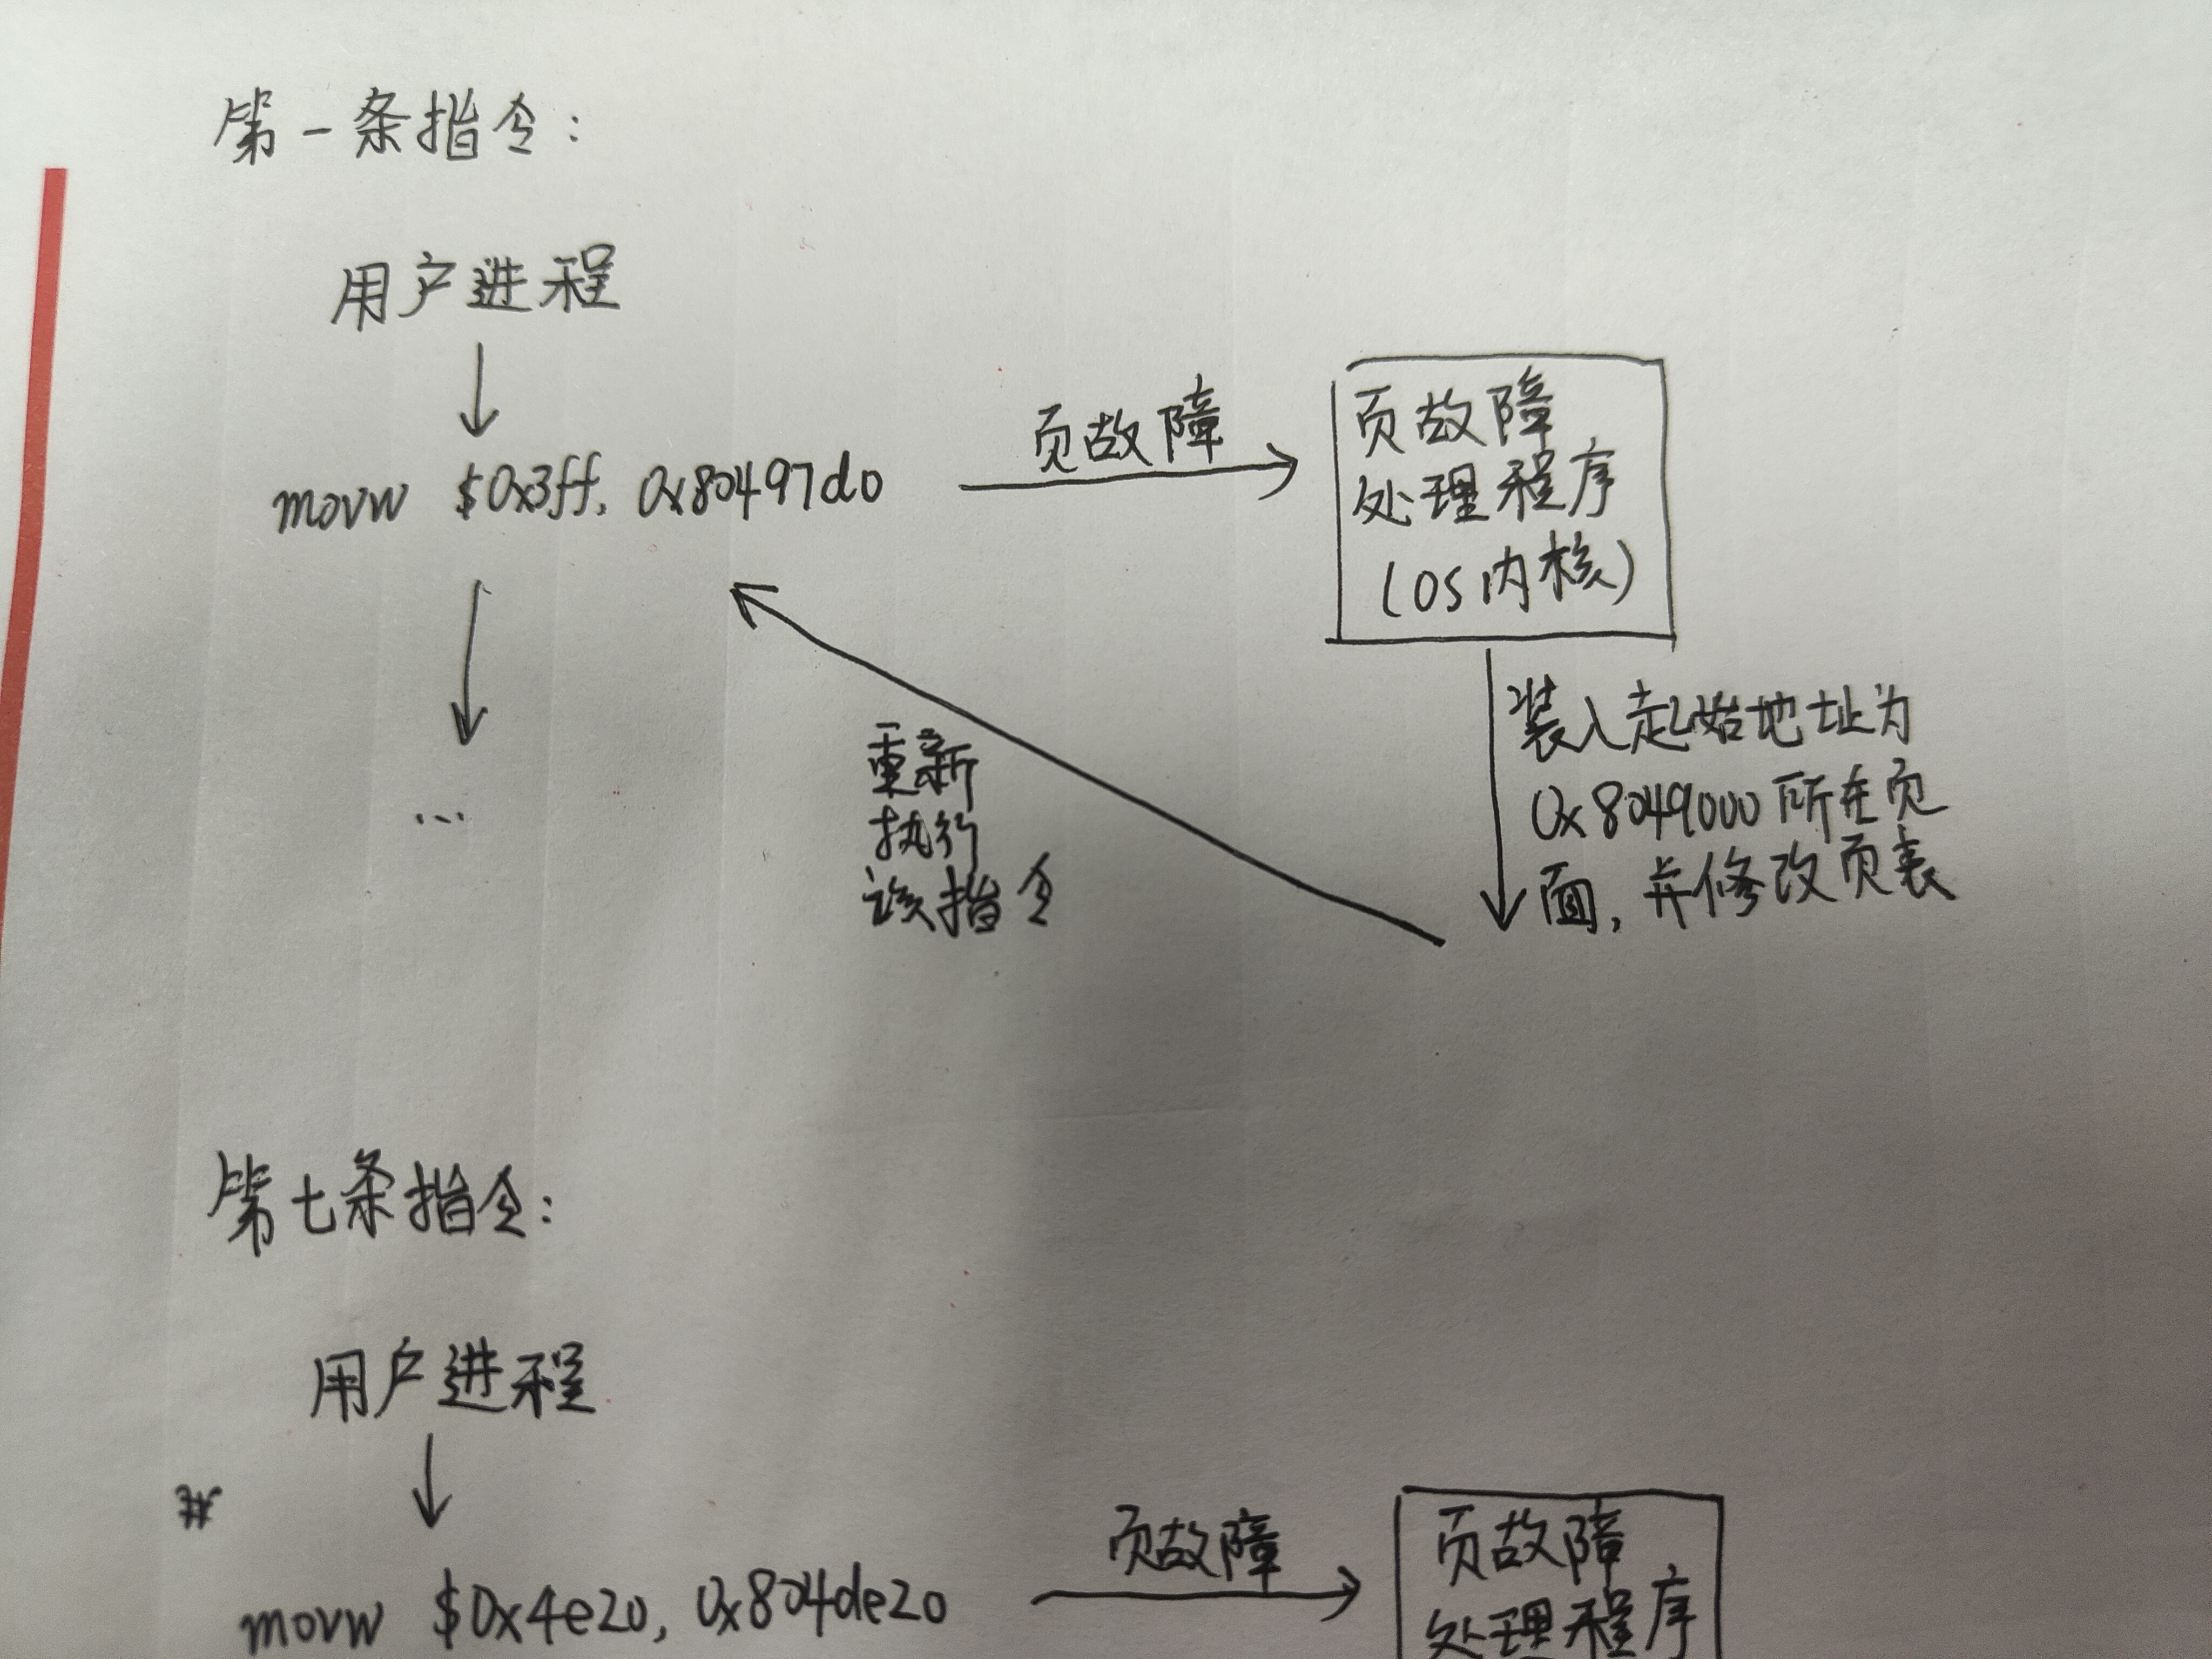 第一条指令：
用户进程
movw $0x3ff, 0x80497d0
页故障
页故障
处理程序
(OS内核)
装入起始地址为
0x8049000所在页
面，并修改页表
重新
执行
该指令
...
第七条指令：
用户进程
movw $0x4e20, 0x804de20
页故障
页故障
处理程序